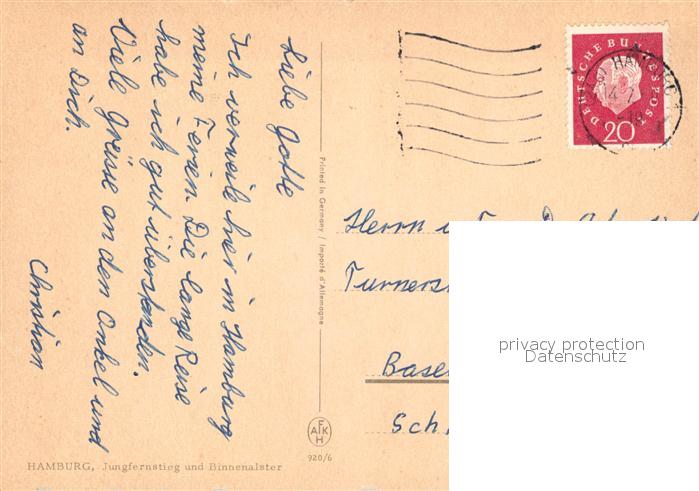 Liebe Gotte
Ich verweile hier in Hamburg
meine Ferien. Die lange Reise
habe ich gut überstanden.
Viele Grüsse an den Onkel und
an Dich.
Christian
Printed in Germany / Importé d'Allemagne
FAKH
920/6
HAMBURG, Jungfernstieg und Binnenalster
DEUTSCHE BUNDESPOST
20
Herrn u.
Turners
Basel
Sch
privacy protection
Datenschutz